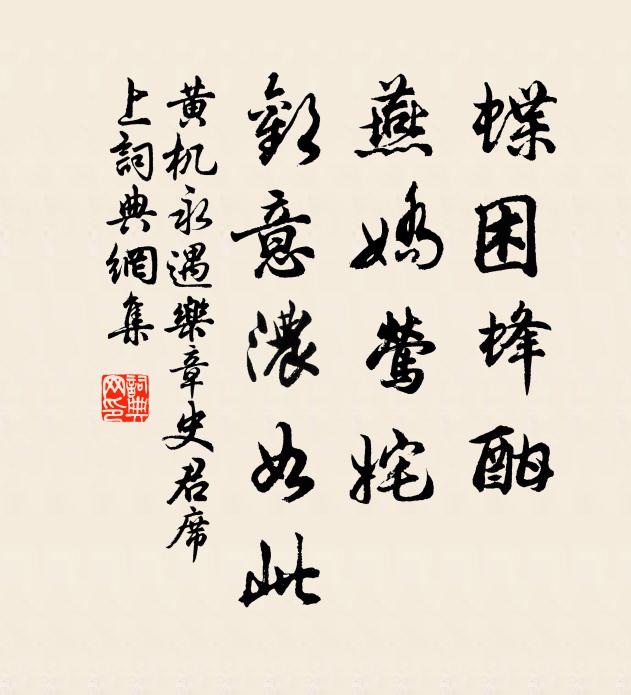 蝶困蜂酣
燕嬌鶯姹
歡意濃如此
黄机永遇樂章史君席
上詞典網集
詞典
网印